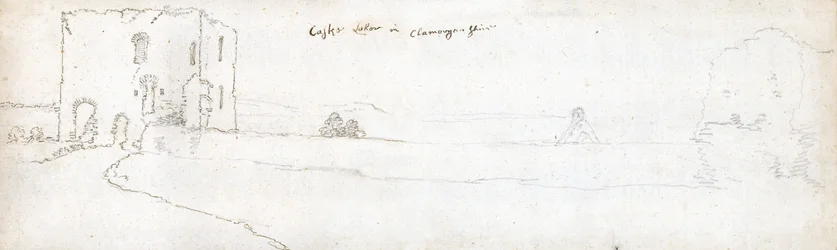 Castle Lohor in Glamorgan Shire